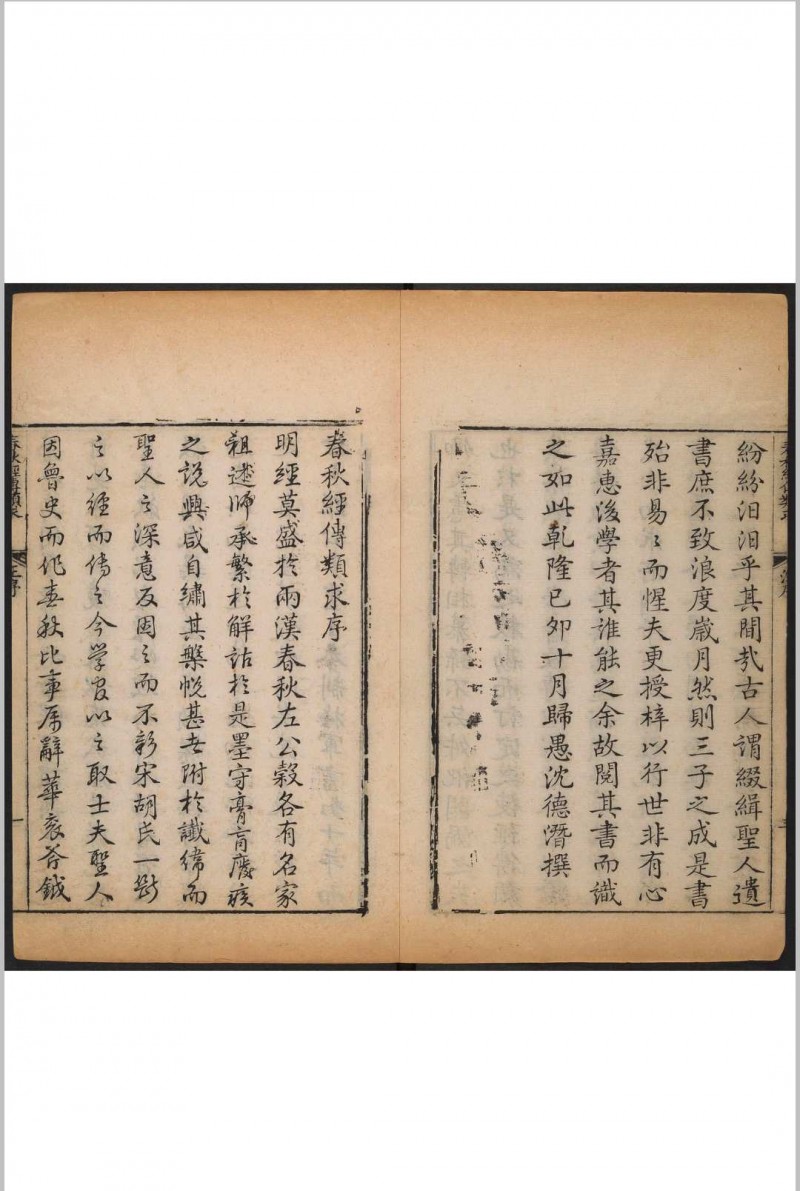 紛紛汨汨乎其間哉古人謂綴緝聖人遺
書庶不致浪度歲月然則三子之成是書
殆非易〻而惺夫更授梓以行世非有心
嘉惠後學者其誰能之余故閱其書而識
之如此乾隆己卯十月歸愚沈德潛撰
春秋經傳類求序
明經莫盛於兩漢春秋左公榖各有名家
祖述師承繁於解詁於是墨守膏肓廢疾
之說興咸自繡其鞶帨甚者附於讖緯而
聖人之深意反因之而不彰宋胡氏一斷
之以經而傳之今學官以之取士夫聖人
因魯史而作春秋比事屬辭華袞斧鉞
春秋經傳類求
序
一